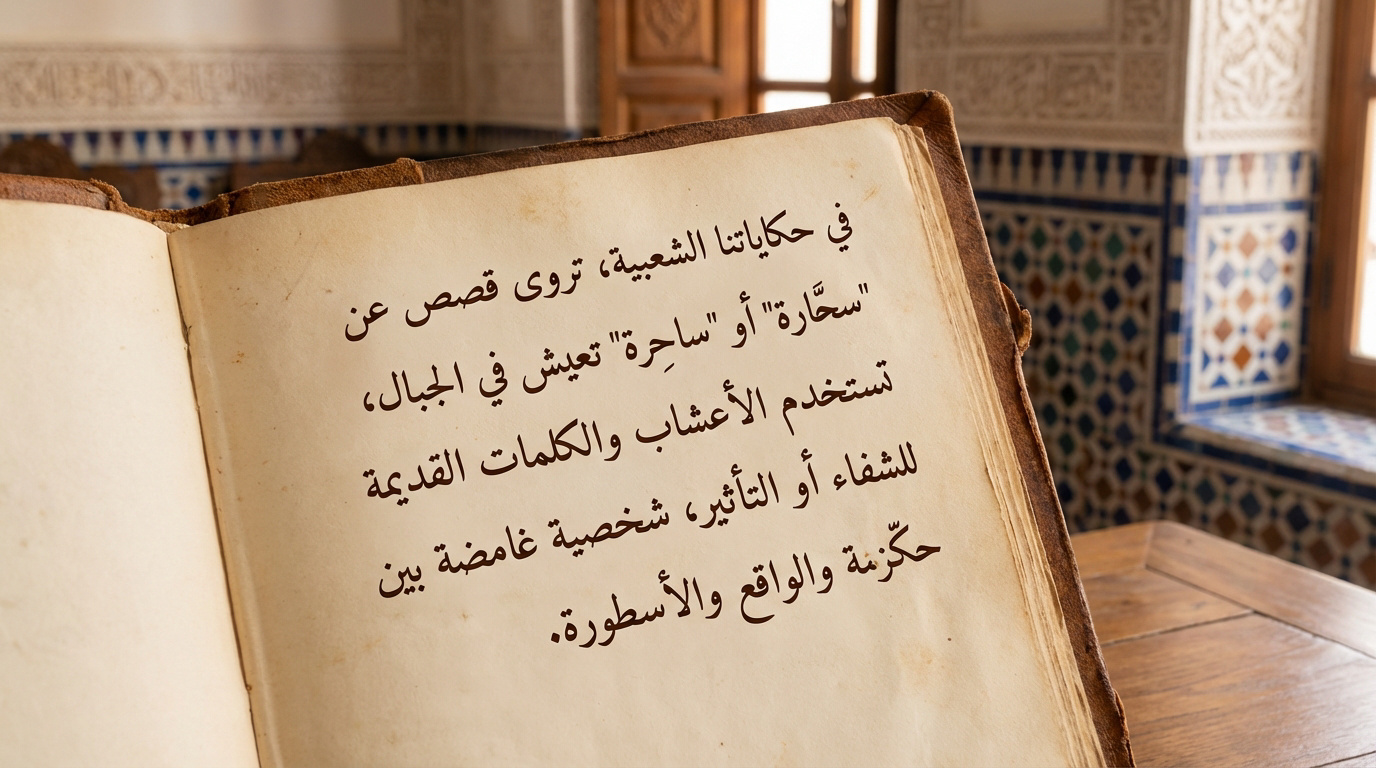 في حكاياتنا الشعبية، تروى قصص عن
"سحَّارة" أو "ساحِرة" تعيش في الجبال،
تستخدم الأعشاب والكلمات القديمة
للشفاء أو التأثير، شخصية غامضة بين
والواقع والأسطورة.